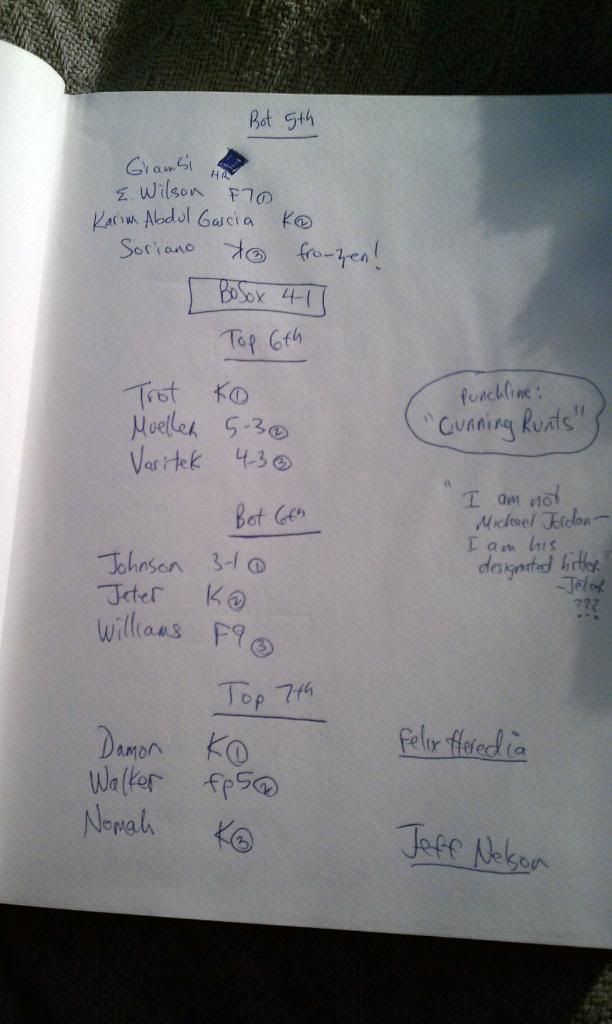 Bot 5th
Giambi HR
E. Wilson F7①
Karim Abdul Garcia K②
Soriano ꓘ③ fro-zen!
BoSox 4-1
Top 6th
Trot K①
Mueller 5-3②
Varitek 4-3③
punchline:
"Cunning Runts"
Bot 6th
"I am not
Michael Jordan—
I am his
designated hitter"
-Jeter
???
Johnson 3-1①
Jeter K②
Williams F9③
Top 7th
Damon K①
Felix Heredia
Walker fp5②
Nomah K③
Jeff Nelson